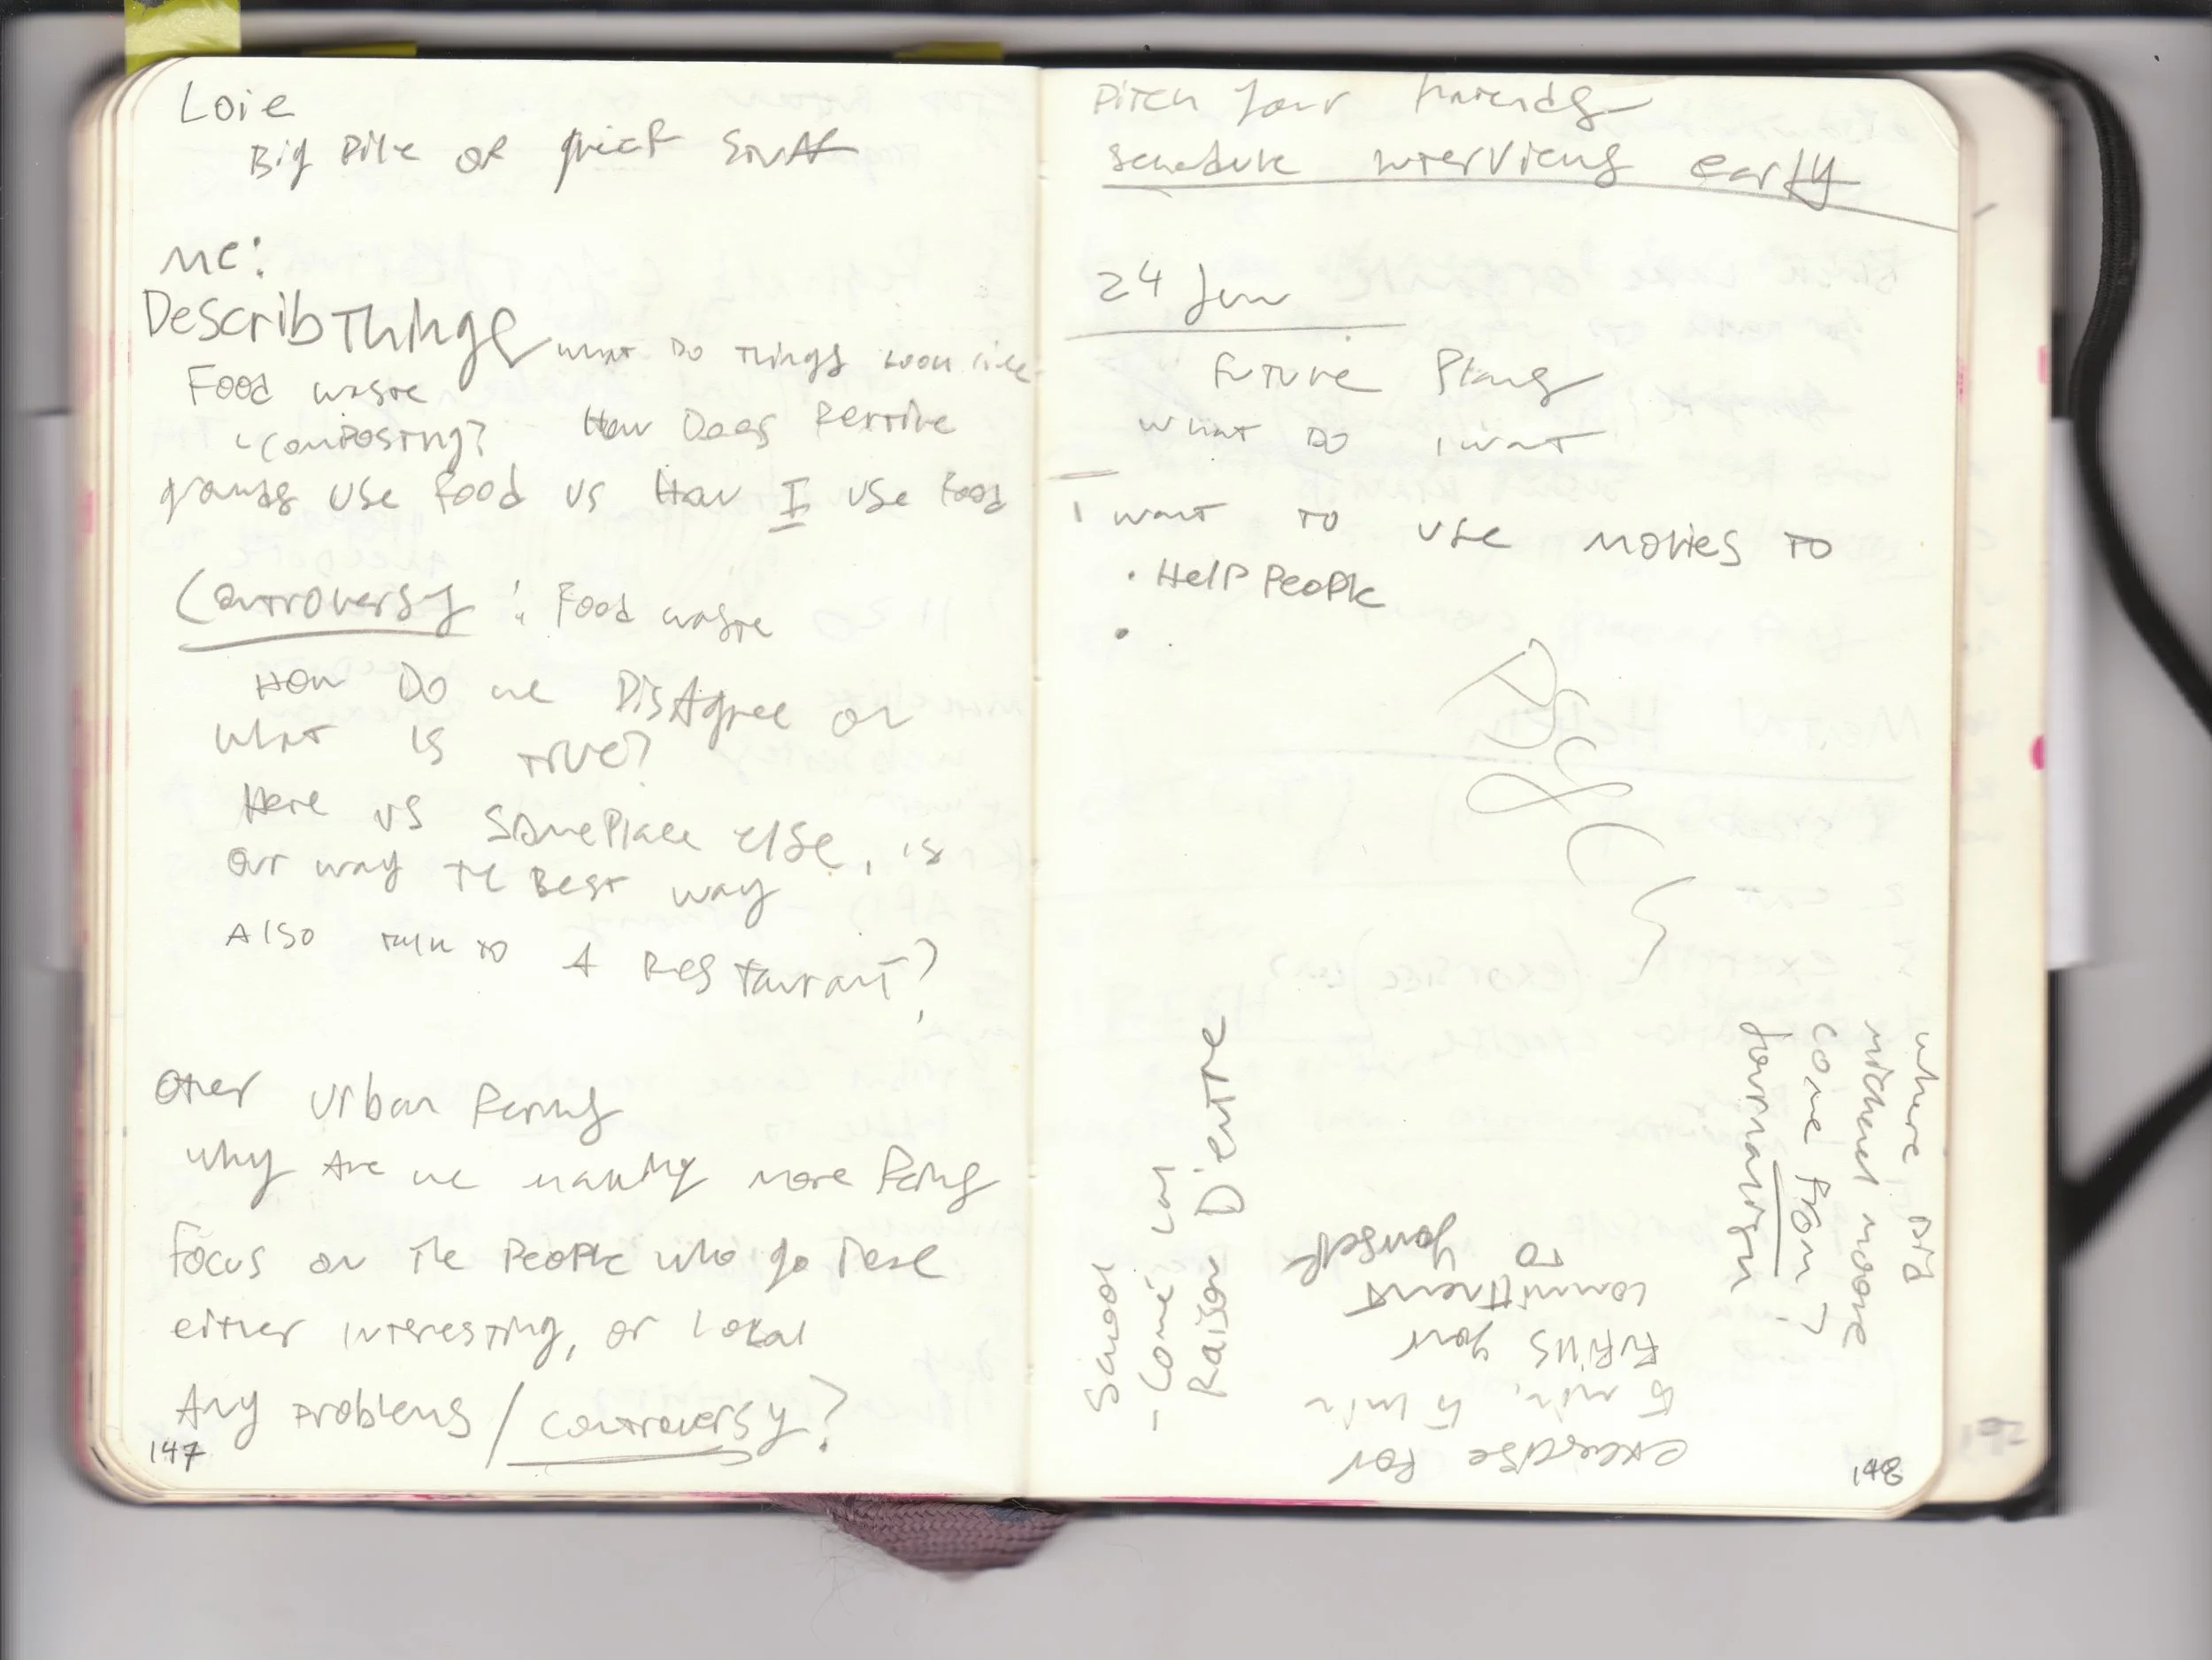 Loie
Big Pile of quick stuff
Me:
Describ Things what do things look like
Food waste
composting? How Does Fertile
grounds use food vs How I use food
Controversy : Food waste
How Do we DisAgree on
what is true?
Here vs someplace else, is
our way the Best way
Also talk to A Restaurant?
Other urban farms
why Are we making more farms
Focus on the People who go there
either interesting, or local
Any problems / controversy?
147
Pitch your friends
schedule interviews early
24 Jun
Future Plans
what Do I want
I want to use movies to
· Help People
·
where did
michael moore
come from?
Journalism
School
Raison D'entre
exercise for
5 min, 5 min
your
commitment
to
yourself
148